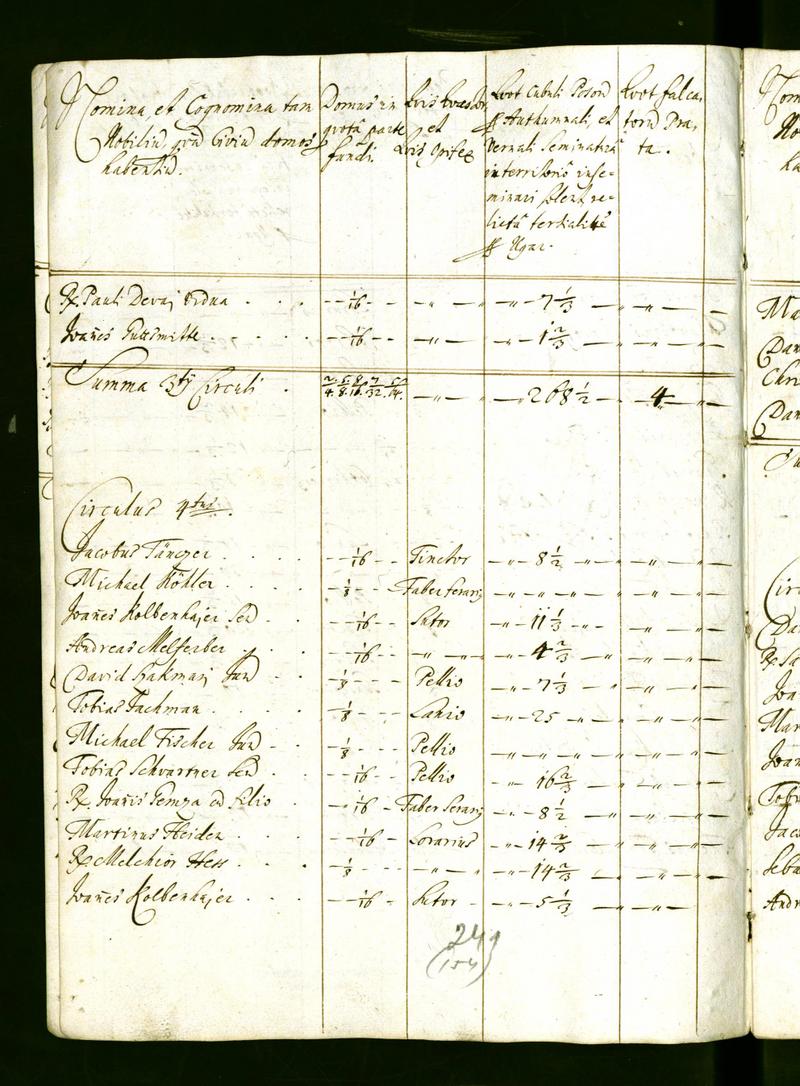 Nomina, et Cognomina tam
Nobiliũ, quã Civiũ domos
habentiũ.
Domus in
quota parte
fundi.
Quis Quaestor,
et
Quis Opifex
Quot Cubuli Poson
Authumnali, et
Vernali Seminaturâ
in territorio inse-
minari solent re-
licta tertialitate
Ugar.
Quot falca-
torũ Pra-
ta.
Rx Pauli Devaj Vidua . . . 1/16 - - " - " - 7 1/3 - " -
Joañes . . . 1/16 - - " - " - 1 2/3 - " -
Summa 3tij Circuli . 268 1/2 - 4 "
Circulus 4tus.
Jacobus Tänczer . . . . 1/16 - - Tinctor - " - 8 1/2 - " - " -
Michael Köhler . . . . 1/8 - - Faber Serariꝰ - " - " - " -
Joañes Kolbenhajer Sen . . 1/16 - Sutor - " - 11 1/3 - " - " -
Andreas Melferber . . . 1/16 - " - " - 4 2/3 - " - " -
David Hakmaj Jun . . 1/8 - - - Pellio - " - 7 1/3 - " - " -
Tobias Jachman . . . . 1/8 - - - Lanio - " - 25 " - " - " -
Michael Fischer Jun . . 1/8 - - - Pellio - " - " - " - " -
Tobias Schvartner Sen . . 1/16 - Pellio - " - 16 2/3 - " - " -
Rx Joañis Pempa cũ filio . . 1/16 - Faber Serariꝰ - " - 8 1/2 - " - " -
Martinus Heiden . . . 1/16 - Lorarius - " - 14 2/3 - " - " -
Rx Melchior Hess . . . 1/8 - - - " - " - 14 2/3 - " - " -
Joañes Kolbenhajer . . . 1/16 - Sutor - " - 5 1/3 - " - " -
249
(154)